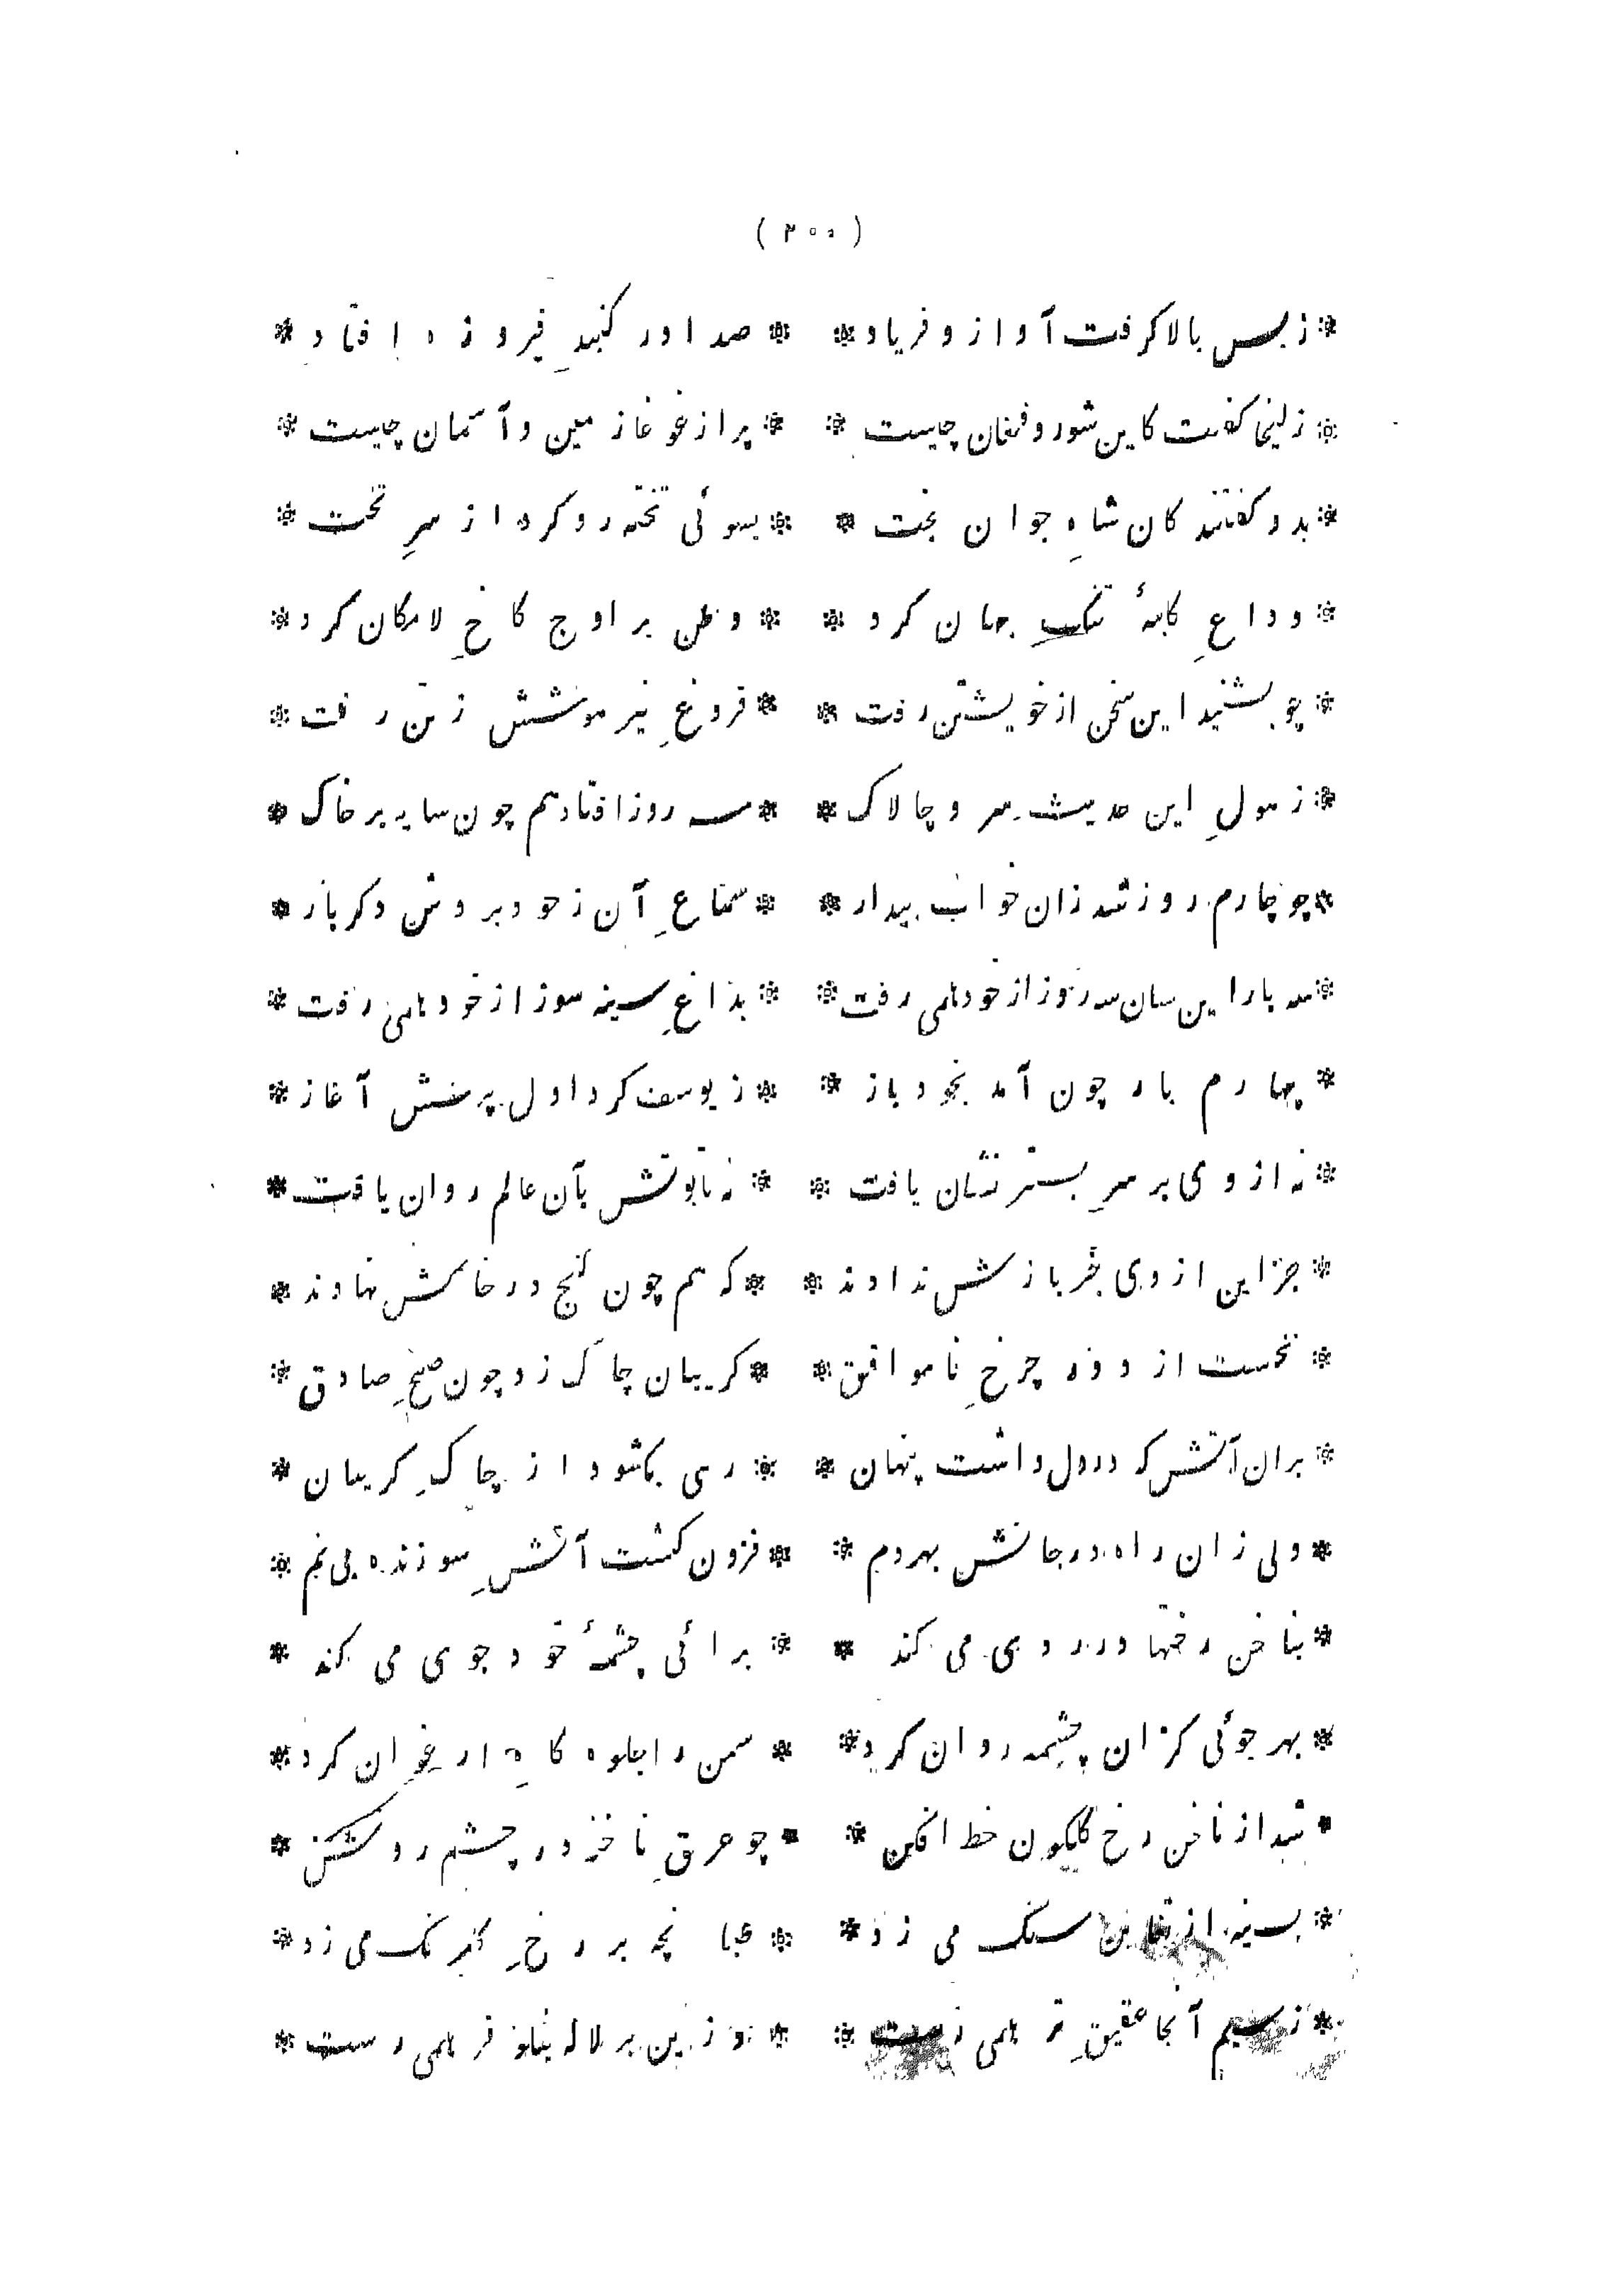 ( ۲۰۰ )
* زبس بالا کرفت آواز و فریاد * * صدا در کنبدِ فیروزه افتاد *
* زلیخا کفت کاین شور و فغان چیست * * پر از غوغا زمین و آسمان چیست *
* بدو کفتند کان شاهِ جوان بخت * * بسوئی تخته رو کرد از سرِ تخت *
* وداعِ کلبهٔ تنکِ جهان کرد * * وطن بر اوج کاخِ لامکان کرد *
* چو بشنید این سخن از خویشتن رفت * * فروغِ نیر هوشش ز تن رفت *
* ز هولِ این حدیث سرو چالاک * * سه روز افتاد هم چون سایه بر خاک *
* چو چارم روز شد زان خواب بیدار * * سماعِ آن ز خود بردش دکر بار *
* سه بار این سان سه روز از خود همی رفت * * بداغِ سینه سوز از خود همی رفت *
* چهارم بار چون آمد بخود باز * * ز یوسف کرد اول پرسش آغاز *
* نه از وی بر سرِ بستر نشان یافت * * نه تابوتش بآن عالم روان یافت *
* جز این از وی خبر بازش ندادند * * که هم چون کنج در خاکش نهادند *
* نخست از دور چرخِ ناموافق * * کریبان چاک زد چون صبحِ صادق *
* بران آتش که در دل داشت پنهان * * رهی بکشود از چاکِ کریبان *
* ولی زان راه در جانش بهردم * * فزون کشت آتشِ سوزنده بی نم *
* بناخن رخنها در روی می کند * * برائی چشمهٔ خود جوی می کند *
* بهر جوئی کزان چشمه روان کرد * * سمن را جلوه کاهِ ارغوان کرد *
* شد از ناخن رخ کلکون خط افکن * * چو عرقِ ناخنه در چشم روشن *
* بسینه از تغابن سنک می زد * * طبانچه بر رخِ کلرنک می زد *
* ز سیم آنجا عقیقِ تر همی رست * * وزین بر لاله نیلوفر همی رست *